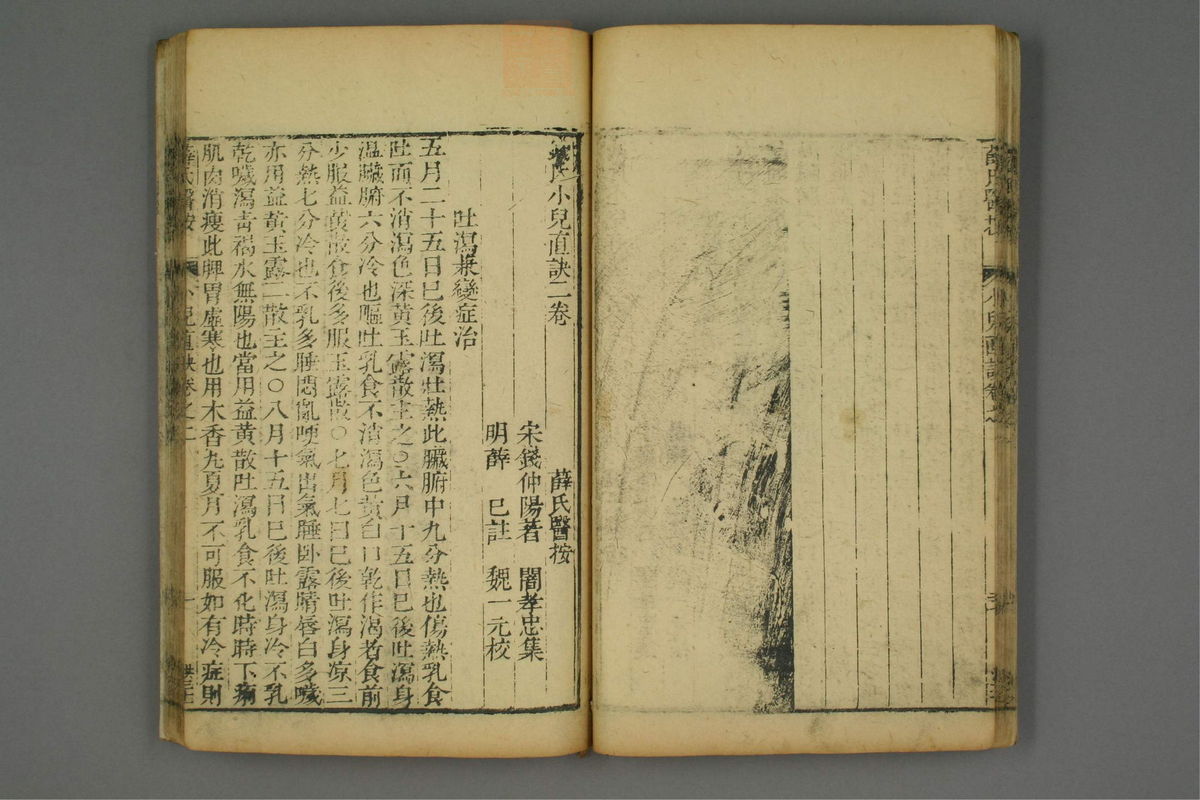 錢氏小兒直訣二卷
薛氏醫按
宋錢仲陽著　閻孝忠集
明薛　已註　魏一元校
吐瀉兼變症治
五月二十五日已後吐瀉壯熱此臟腑中九分熱也傷熱乳食
吐而不消瀉色深黃玉露散主之○六月十五日已後吐瀉身
温臟腑六分冷也嘔吐乳食不消瀉色黃白口乾作渴者食前
少服益黃散食後多服玉露散○七月七日已後吐瀉身凉三
分熱七分冷也不乳多睡悶亂哽氣出氣睡卧露睛唇白多噦
亦用益黃玉露二散主之○八月十五日已後吐瀉身冷不乳
乾噦瀉靑褐水無陽也當用益黃散吐瀉乳食不化時時下痢
肌肉消瘦此脾胃虛寒也用木香丸夏月不可服如有冷症則
薛氏醫按　小兒直訣卷之二　一